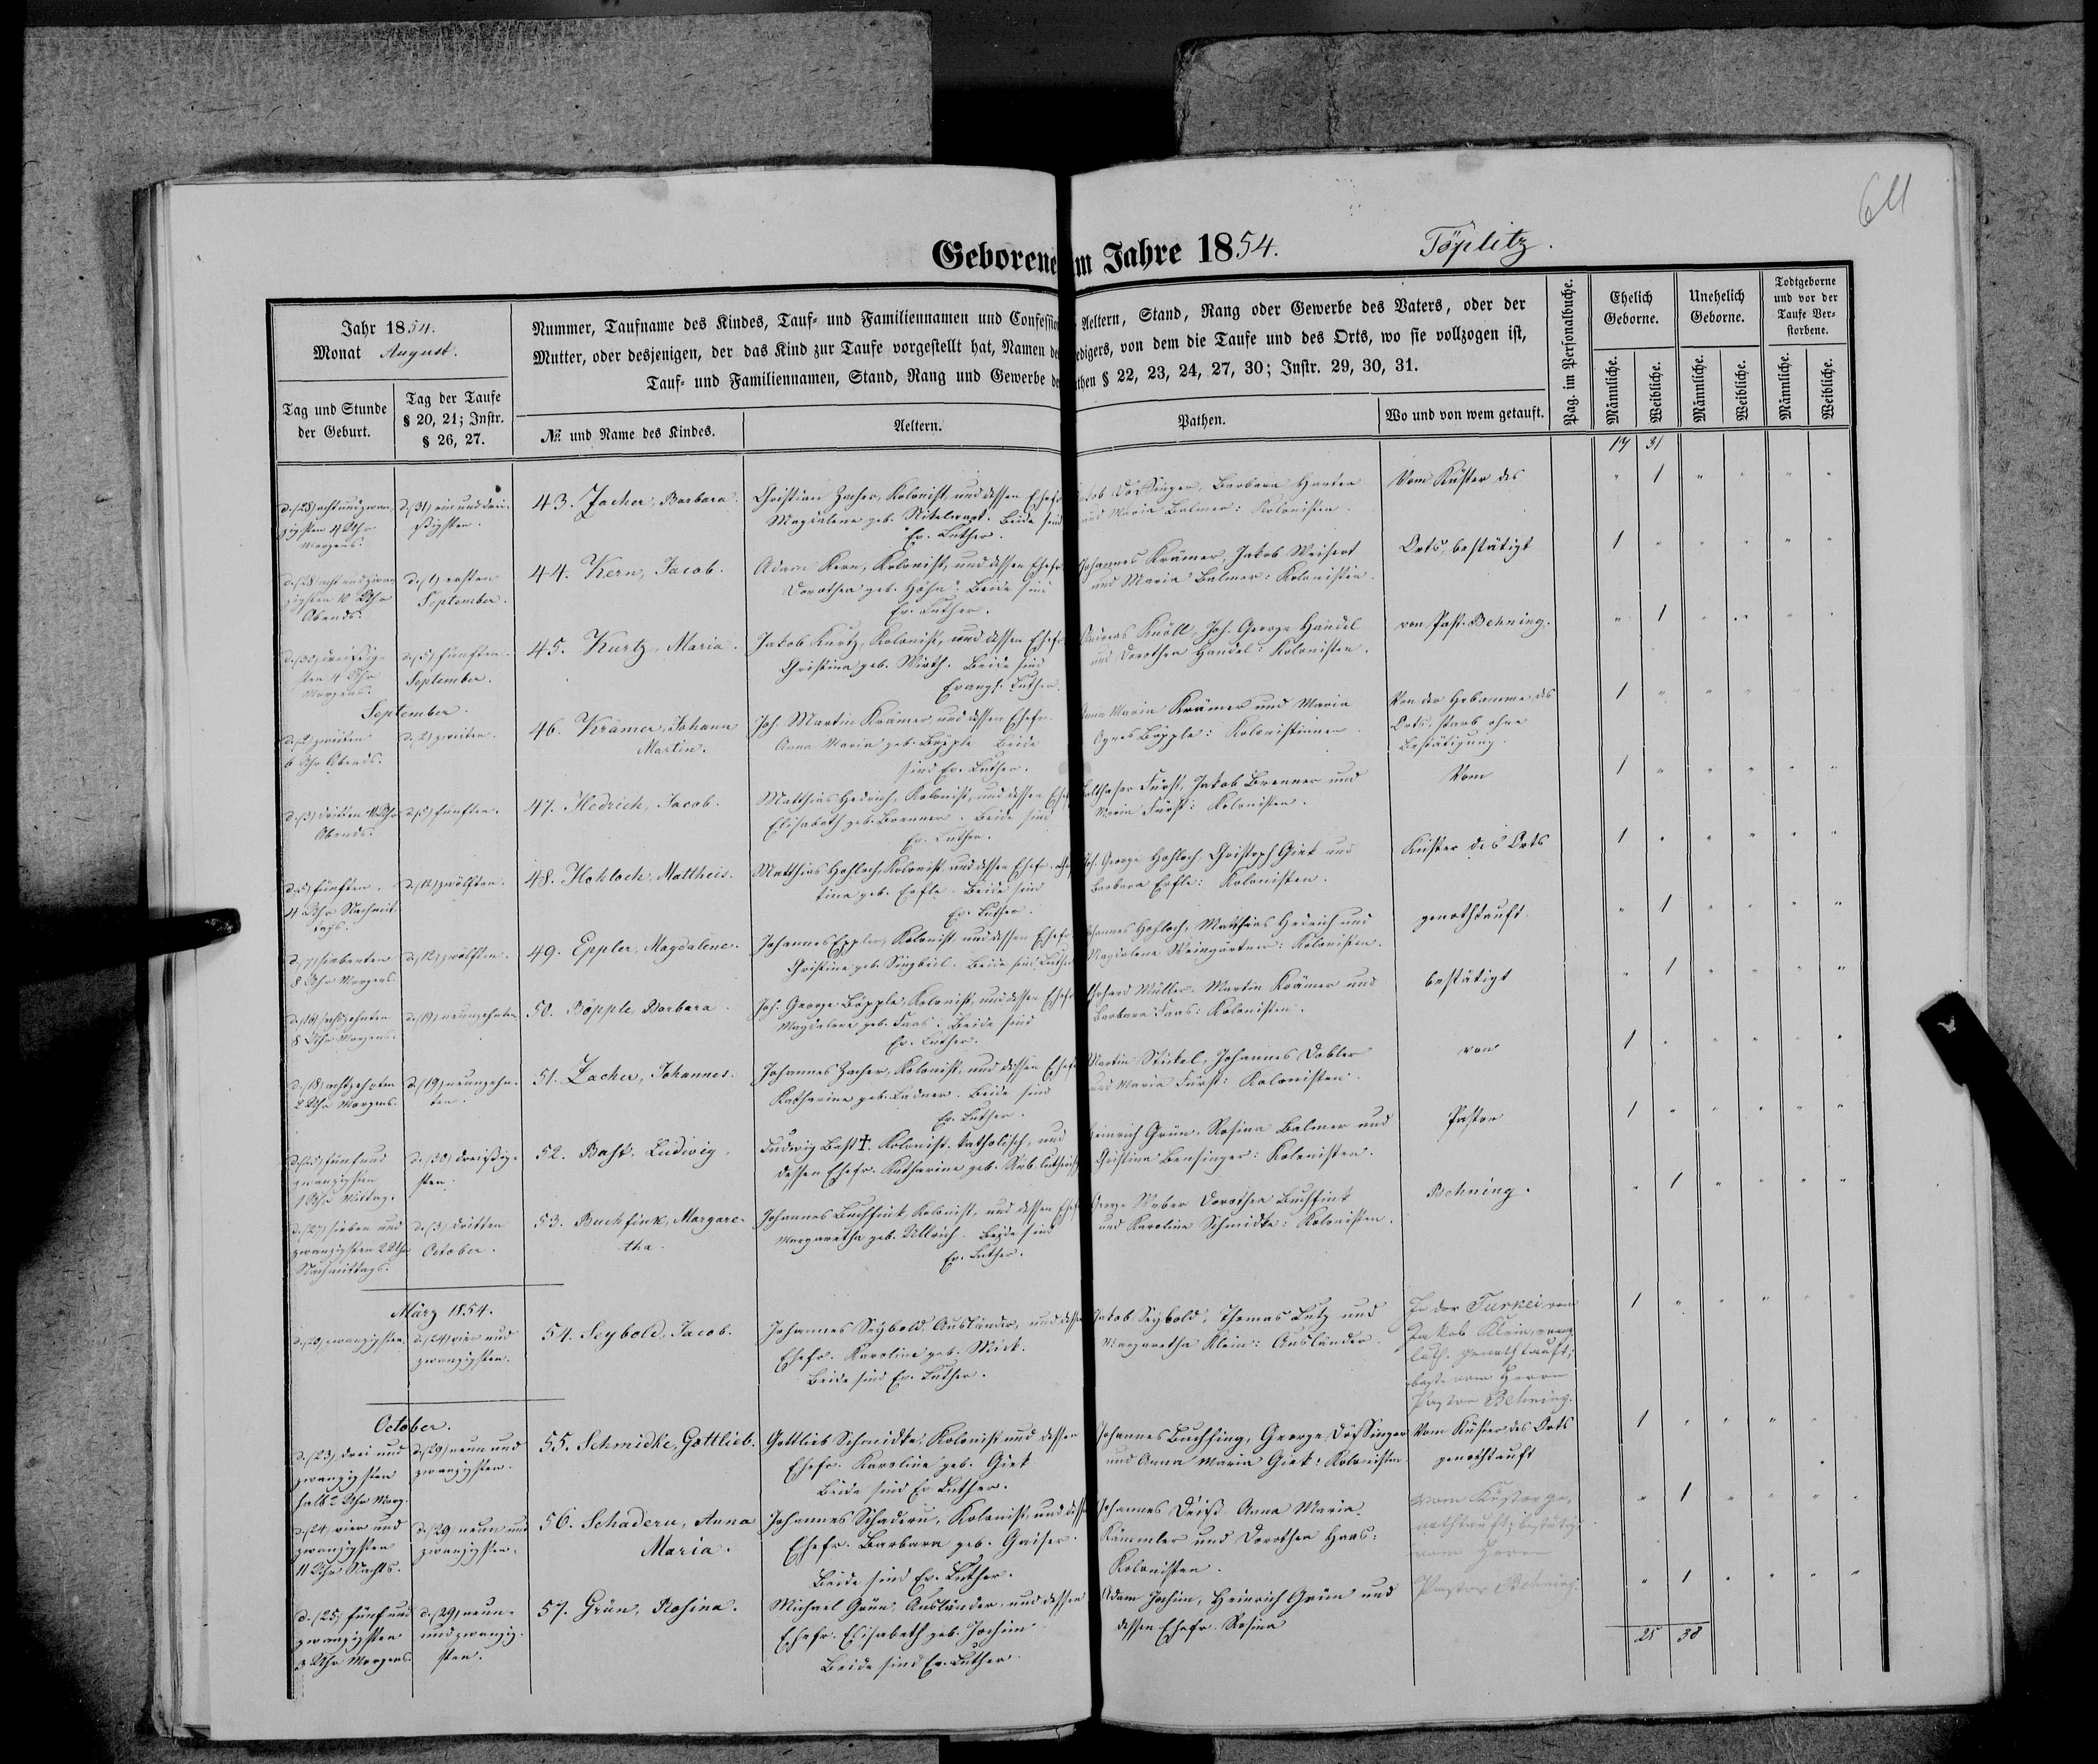 611
Geborene im Jahre 1854. Töplitz.
Jahr 1854.
Monat August.
Tag und Stunde der Geburt.
Tag der Taufe § 20, 21; Instr. § 26, 27.
Nummer, Taufname des Kindes, Tauf- und Familiennamen und Confession
Aeltern, Stand, Rang oder Gewerbe des Vaters, oder der
Mutter, oder desjenigen, der das Kind zur Taufe vorgestellt hat, Namen
edigers, von dem die Taufe und des Orts, wo sie vollzogen ist,
Tauf- und Familiennamen, Stand, Rang und Gewerbe
then § 22, 23, 24, 27, 30; Instr. 29, 30, 31.
№ und Name des Kindes.
Aeltern.
Pathen.
Wo und von wem getauft.
Pag. im Personalbuche.
Ehelich Geborne.
Unehelich Geborne.
Todtgeborne und vor der Taufe Verstorbene.
Männliche. Weibliche. Männliche. Weibliche. Männliche. Weibliche.
17 31
d. (28) achtundzwan-
zigsten 4 Uhr
Morgens.
d. (31) ein und drei-
ßigsten.
43. Zacher, Barbara.
Christian Zacher, Kolonist, und dessen Ehefr.
Magdalena geb. Beide sind
Ev. Luther.
Jakob Dössinger, Barbara Harter
und Maria Balmer: Kolonisten.
Vom Küster des
" 1 " " " "
d. (28) acht und zwan-
zigsten 10 Uhr
Abends.
d. (1) ersten
September.
44. Kern, Jacob.
Adam Kern, Kolonist, und dessen Ehefr.
Dorothea geb. Höhn. Beide sind
Ev. Luther.
Johannes Krämer, Jakob Weisert
und Maria Balmer: Kolonisten.
Orts, bestätigt
1 " " " " "
d. (30) dreißig-
sten 4 Uhr
Morgens.
d. (5) fünften
September.
45. Kurtz, Maria.
Jakob Kurtz, Kolonist, und dessen Ehefr.
Christina geb. Wirth. Beide sind
Evangl. Luther.
Andreas Knöll, Joh. George Handel
und Dorothea Handel: Kolonisten.
von Past. Behning.
" 1 " " " "
September.
d. (2) zweiten
6 Uhr Abends.
d. (2) zweiten.
46. Krämer, Johann
Martin.
Joh. Martin Krämer und dessen Ehefr.
Anna Maria geb. Böpple Beide
sind Ev. Luther.
Anna Maria Krämer und Maria
Agnes Böpple: Kolonistinnen.
Von der Hebamme des
Orts, starb ohne
Bestätigung.
1 " " " " "
d. (3) dritten 11 Uhr
Abends.
d. (5) fünften.
47. Hedrich, Jacob.
Matthias Hedrich, Kolonist, und dessen Ehefr.
Elisabeth geb. Brenner. Beide sind
Ev. Luther.
Balthaser Fürst, Jakob Brenner und
Maria Fürst: Kolonisten.
Vom
1 " " " " "
d. (5) fünften.
4 Uhr Nachmit-
tags.
d. (12) zwölften.
48. Hohloch, Mattheis.
Matthias Hohloch, Kolonist, und dessen Ehefr. Chris-
tina geb. Erfle. Beide sind
Ev. Luther.
Joh. George Hohloch, Christoph Giek und
Barbara Erfle: Kolonisten.
Küster des Orts
1 " " " " "
d. (7) siebenten
8 Uhr Morgens.
d. (12) zwölften.
49. Eppler, Magdalene.
Johannes Eppler, Kolonist und dessen Ehefr.
Christina geb. Singbeil. Beide sind Luther.
Johannes Hohloch, Matthias Hedrich und
Magdalena Weingärtner: Kolonisten.
genothtauft.
" 1 " " " "
d. (16) sechszehnten
8 Uhr Morgens.
d. (19) neunzehnten.
50. Böpple, Barbara.
Joh. George Böpple, Kolonist, und dessen Ehefr.
Magdalena geb. Faas. Beide sind
Ev. Luther.
Erhard Müller, Martin Krämer und
Barbara Faas: Kolonisten.
bestätigt
" 1 " " " "
d. (18) achtzehnten
2 Uhr Morgens.
d. (19) neunzehn-
ten.
51. Zacher, Johannes.
Johannes Zacher, Kolonist, und dessen Ehefr.
Katharina geb. Ladner. Beide sind
Ev. Luther.
Martin Stickel, Johannes Dobler
und Maria Fürst: Kolonisten.
von
1 " " " " "
d. (25) fünf und
zwanzigsten
1 Uhr Mittag.
d. (30) dreißig-
sten.
52. Bast, Ludwig.
Ludwig Bast † Kolonist, katholisch, und
dessen Ehefr. Katharina geb. lutherisch
Heinrich Grün, Rosina Balmer und
Christina Bensinger: Kolonisten.
Pastor
1 " " " " "
d. (27) sieben und
zwanzigsten 2 Uhr
Nachmittags.
d. (3) dritten
October.
53. Buchfink, Margare-
tha.
Johannes Buchfink, Kolonist, und dessen Ehefr.
Margaretha geb. Ullrich. Beide sind
Ev. Luther.
George Weber Dorothea Buchfink
und Karolina Schmidke: Kolonisten.
Behning.
" 1 " " " "
März 1854.
d. (20) zwanzigsten.
d. (24) vier und
zwanzigsten.
54. Seybold, Jacob.
Johannes Seybold, Ausländer, und dessen
Ehefr. Karoline geb. Mick.
Beide sind Ev. Luther.
Jakob Seybold, Thomas Lutz und
Margaretha Klein: Ausländer.
In der Turkei von
Jakob Klein, evang.
luth. genothtauft;
best. vom Herrn
Pastor Behning.
1 " " " " "
October.
d. (23) drei und
zwanzigsten
halb 2 Uhr Morg.
d. (29) neun und
zwanzigsten.
55. Schmidke, Gottlieb.
Gottlieb Schmidke, Kolonist und dessen
Ehefr. Karoline geb. Giek
Beide sind Ev. Luther.
Johannes Buchfing, George Dössinger
und Anna Maria Giek: Kolonisten.
Vom Küster des Orts
genothtauft
1 " " " " "
d. (24) vier und
zwanzigsten
11 Uhr Nachts.
d. (29) neun und
zwanzigsten.
56. Schaderu, Anna
Maria.
Johannes Schaderu, Kolonist, und dessen
Ehefr. Barbara geb. Gaiser.
Beide sind Ev. Luther.
Johannes Deiß Anna Maria
Kämmler und Dorothea Haas:
Kolonisten.
vom Küster ge-
nothtauft; bestätigt
vom Herrn
Pastor Behning.
" 1 " " " "
d. (25) fünf und
zwanzigsten
3 Uhr Morgens.
d. (29) neun-
und zwanzig-
sten.
57. Grün, Rosina.
Michael Grün, Ausländer, und dessen
Ehefr. Elisabeth geb. Jochim
Beide sind Ev. Luther.
Adam Jochim, Heinrich Grün und
dessen Ehefr. Rosina
" 1 " " " "
25 38